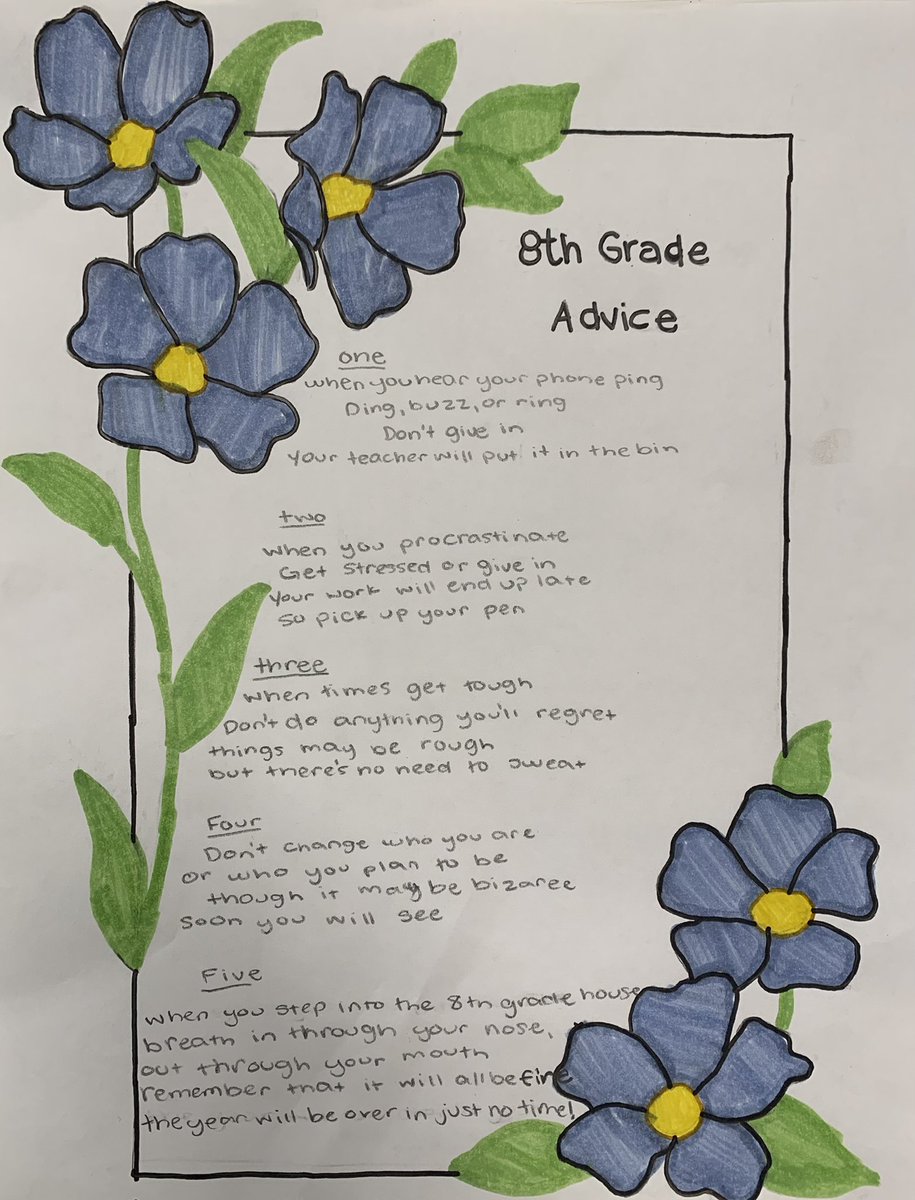 8th Grade
Advice
one
when you hear your phone ping
Ding, buzz, or ring
Don't give in
Your teacher will put it in the bin
two
when you procrastinate
Get stressed or give in
Your work will end up late
So pick up your pen
three
when times get tough
Don't do anything you'll regret
things may be rough
but there's no need to sweat
Four
Don't change who you are
or who you plan to be
though it may be bizaree
Soon you will see
Five
when you step into the 8th grade house
breath in through your nose,
out through your mouth
remember that it will all be fine
the year will be over in just no time!